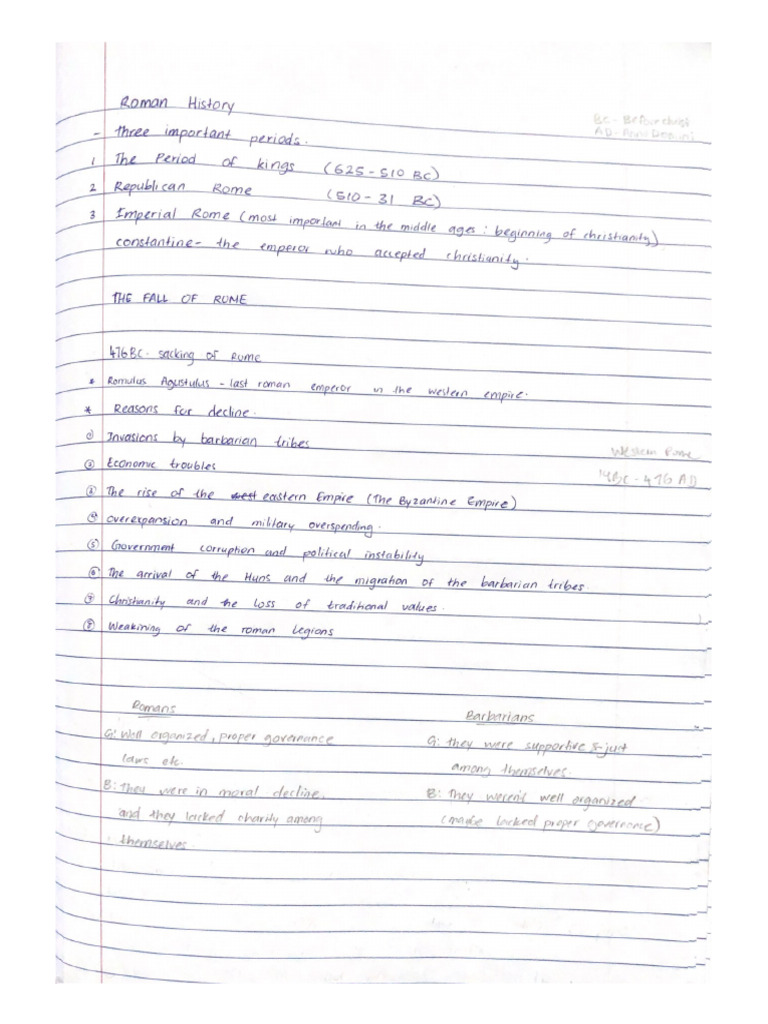 Roman History
BC - Before christ
AD - Anno Domini
- Three important periods.
1 The Period of kings (625 - 510 BC)
2 Republican Rome (510 - 31 BC)
3 Imperial Rome (most important in the middle ages : beginning of christianity)
constantine - the emperor who accepted christianity.
THE FALL OF ROME
476 BC - sacking of Rome
* Romulus Agustulus - last roman emperor in the western empire.
* Reasons for decline.
① Invasions by barbarian tribes
Western Rome
② Economic troubles
14BC - 476 AD
③ The rise of the west eastern Empire (The Byzantine Empire)
④ overexpansion and military overspending.
⑤ Government corruption and political instability
⑥ The arrival of the Huns and the migration of the barbarian tribes.
⑦ Christianity and the loss of traditional values.
⑧ Weakining of the roman legions
Romans
G: Well organized, proper governance
laws etc.
B: They were in moral decline,
and they lacked charity among
themselves.
Barbarians
G: they were supportive & just
among themselves.
B: They weren't well organized
(maybe lacked proper governance)